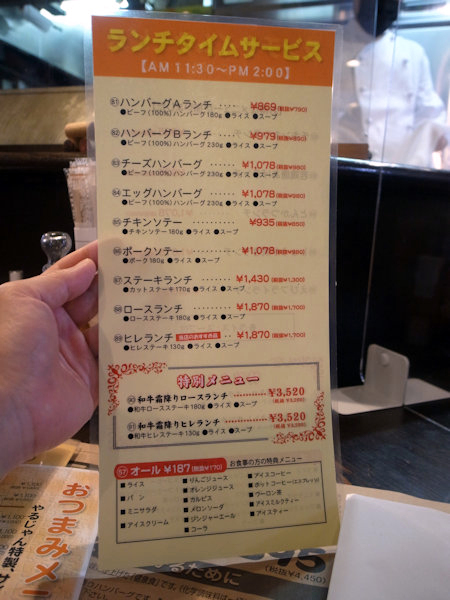 ランチタイムサービス
【AM 11:30～PM 2:00】
81 ハンバーグAランチ ‥‥ ¥869(税抜¥790)
●ビーフ(100%)ハンバーグ180g ●ライス ●スープ
82 ハンバーグBランチ ‥‥ ¥979(税抜¥890)
●ビーフ(100%)ハンバーグ230g ●ライス ●スープ
83 チーズハンバーグ ‥‥‥ ¥1,078(税抜¥980)
●ビーフ(100%)ハンバーグ230g ●ライス ●スープ
84 エッグハンバーグ ‥‥‥ ¥1,078(税抜¥980)
●ビーフ(100%)ハンバーグ230g ●ライス ●スープ
85 チキンソテー ‥‥‥‥ ¥935(税抜¥850)
●チキンソテー180g ●ライス ●スープ
86 ポークソテー ‥‥‥‥ ¥1,078(税抜¥980)
●ポーク180g ●ライス ●スープ
87 ステーキランチ ‥‥‥ ¥1,430(税抜¥1,300)
●カットステーキ170g ●ライス ●スープ
88 ロースランチ ‥‥‥‥ ¥1,870(税抜¥1,700)
●ロースステーキ180g ●ライス ●スープ
89 ヒレランチ 当店のおすすめ品 ‥ ¥1,870(税抜¥1,700)
●ヒレステーキ130g ●ライス ●スープ
特別メニュー
90 和牛霜降りロースランチ ‥‥‥ ¥3,520
●和牛ロースステーキ180g ●ライス ●スープ (税抜 ¥3,200)
91 和牛霜降りヒレランチ ‥‥‥ ¥3,520
●和牛ヒレステーキ130g ●ライス ●スープ (税抜 ¥3,200)
57 オール ¥187(税抜¥170) お食事の方の特典メニュー
■ライス ■りんごジュース ■アイスコーヒー
■パン ■オレンジジュース ■ホットコーヒー(エスプレッソ)
■ミニサラダ ■カルピス ■ウーロン茶
■アイスクリーム ■メロンソーダ ■アイスミルクティー
■ジンジャーエール ■アイスティー
■コーラ
おつまみメニ
やるじゃん特製、サ
(税抜 ¥4,450)
るために